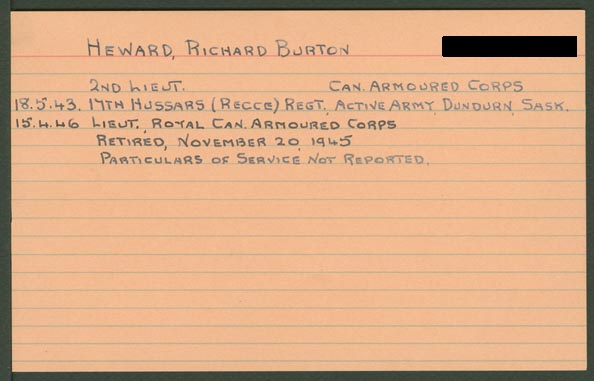 HEWARD, RICHARD BURTON
2ND LIEUT. CAN. ARMOURED CORPS
18.5.43. 17TH HUSSARS (RECCE) REGT., ACTIVE ARMY, DUNDURN, SASK.
15.4.46 LIEUT., ROYAL CAN. ARMOURED CORPS
RETIRED, NOVEMBER 20, 1945
PARTICULARS OF SERVICE NOT REPORTED.